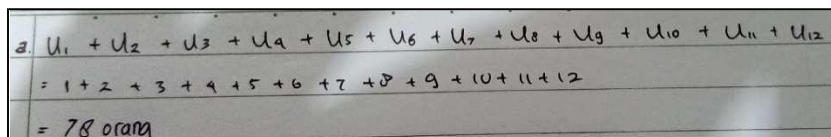 a. U1 + U2 + U3 + U4 + U5 + U6 + U7 + U8 + U9 + U10 + U11 + U12
= 1 + 2 + 3 + 4 + 5 + 6 + 7 + 8 + 9 + 10 + 11 + 12
= 78 orang